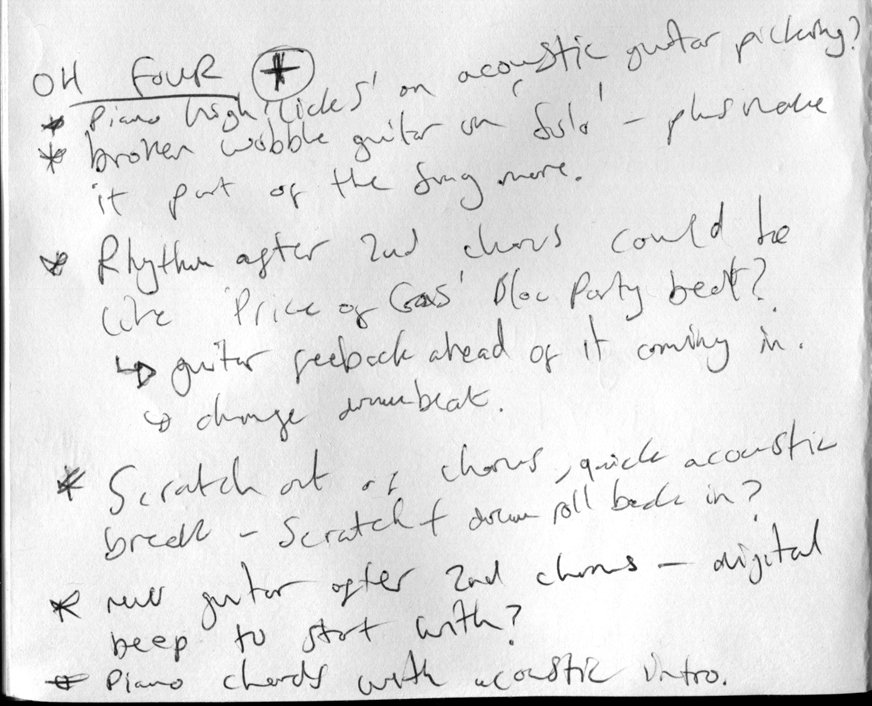 OH FOUR +
* Piano high 'licks' on acoustic guitar picking?
* broken wobble guitar on 'solo' - plus make
it part of the song more.
* Rhythm after 2nd chorus could be
like 'Price of Gas' Bloc Party beat?
↳ guitar feeback ahead of it coming in.
↳ change drumbeat.
* Scratch out of chorus, quick acoustic
break - Scratch + drum roll back in?
* new guitar after 2nd chorus - digital
beep to start with?
* Piano chords with acoustic intro.